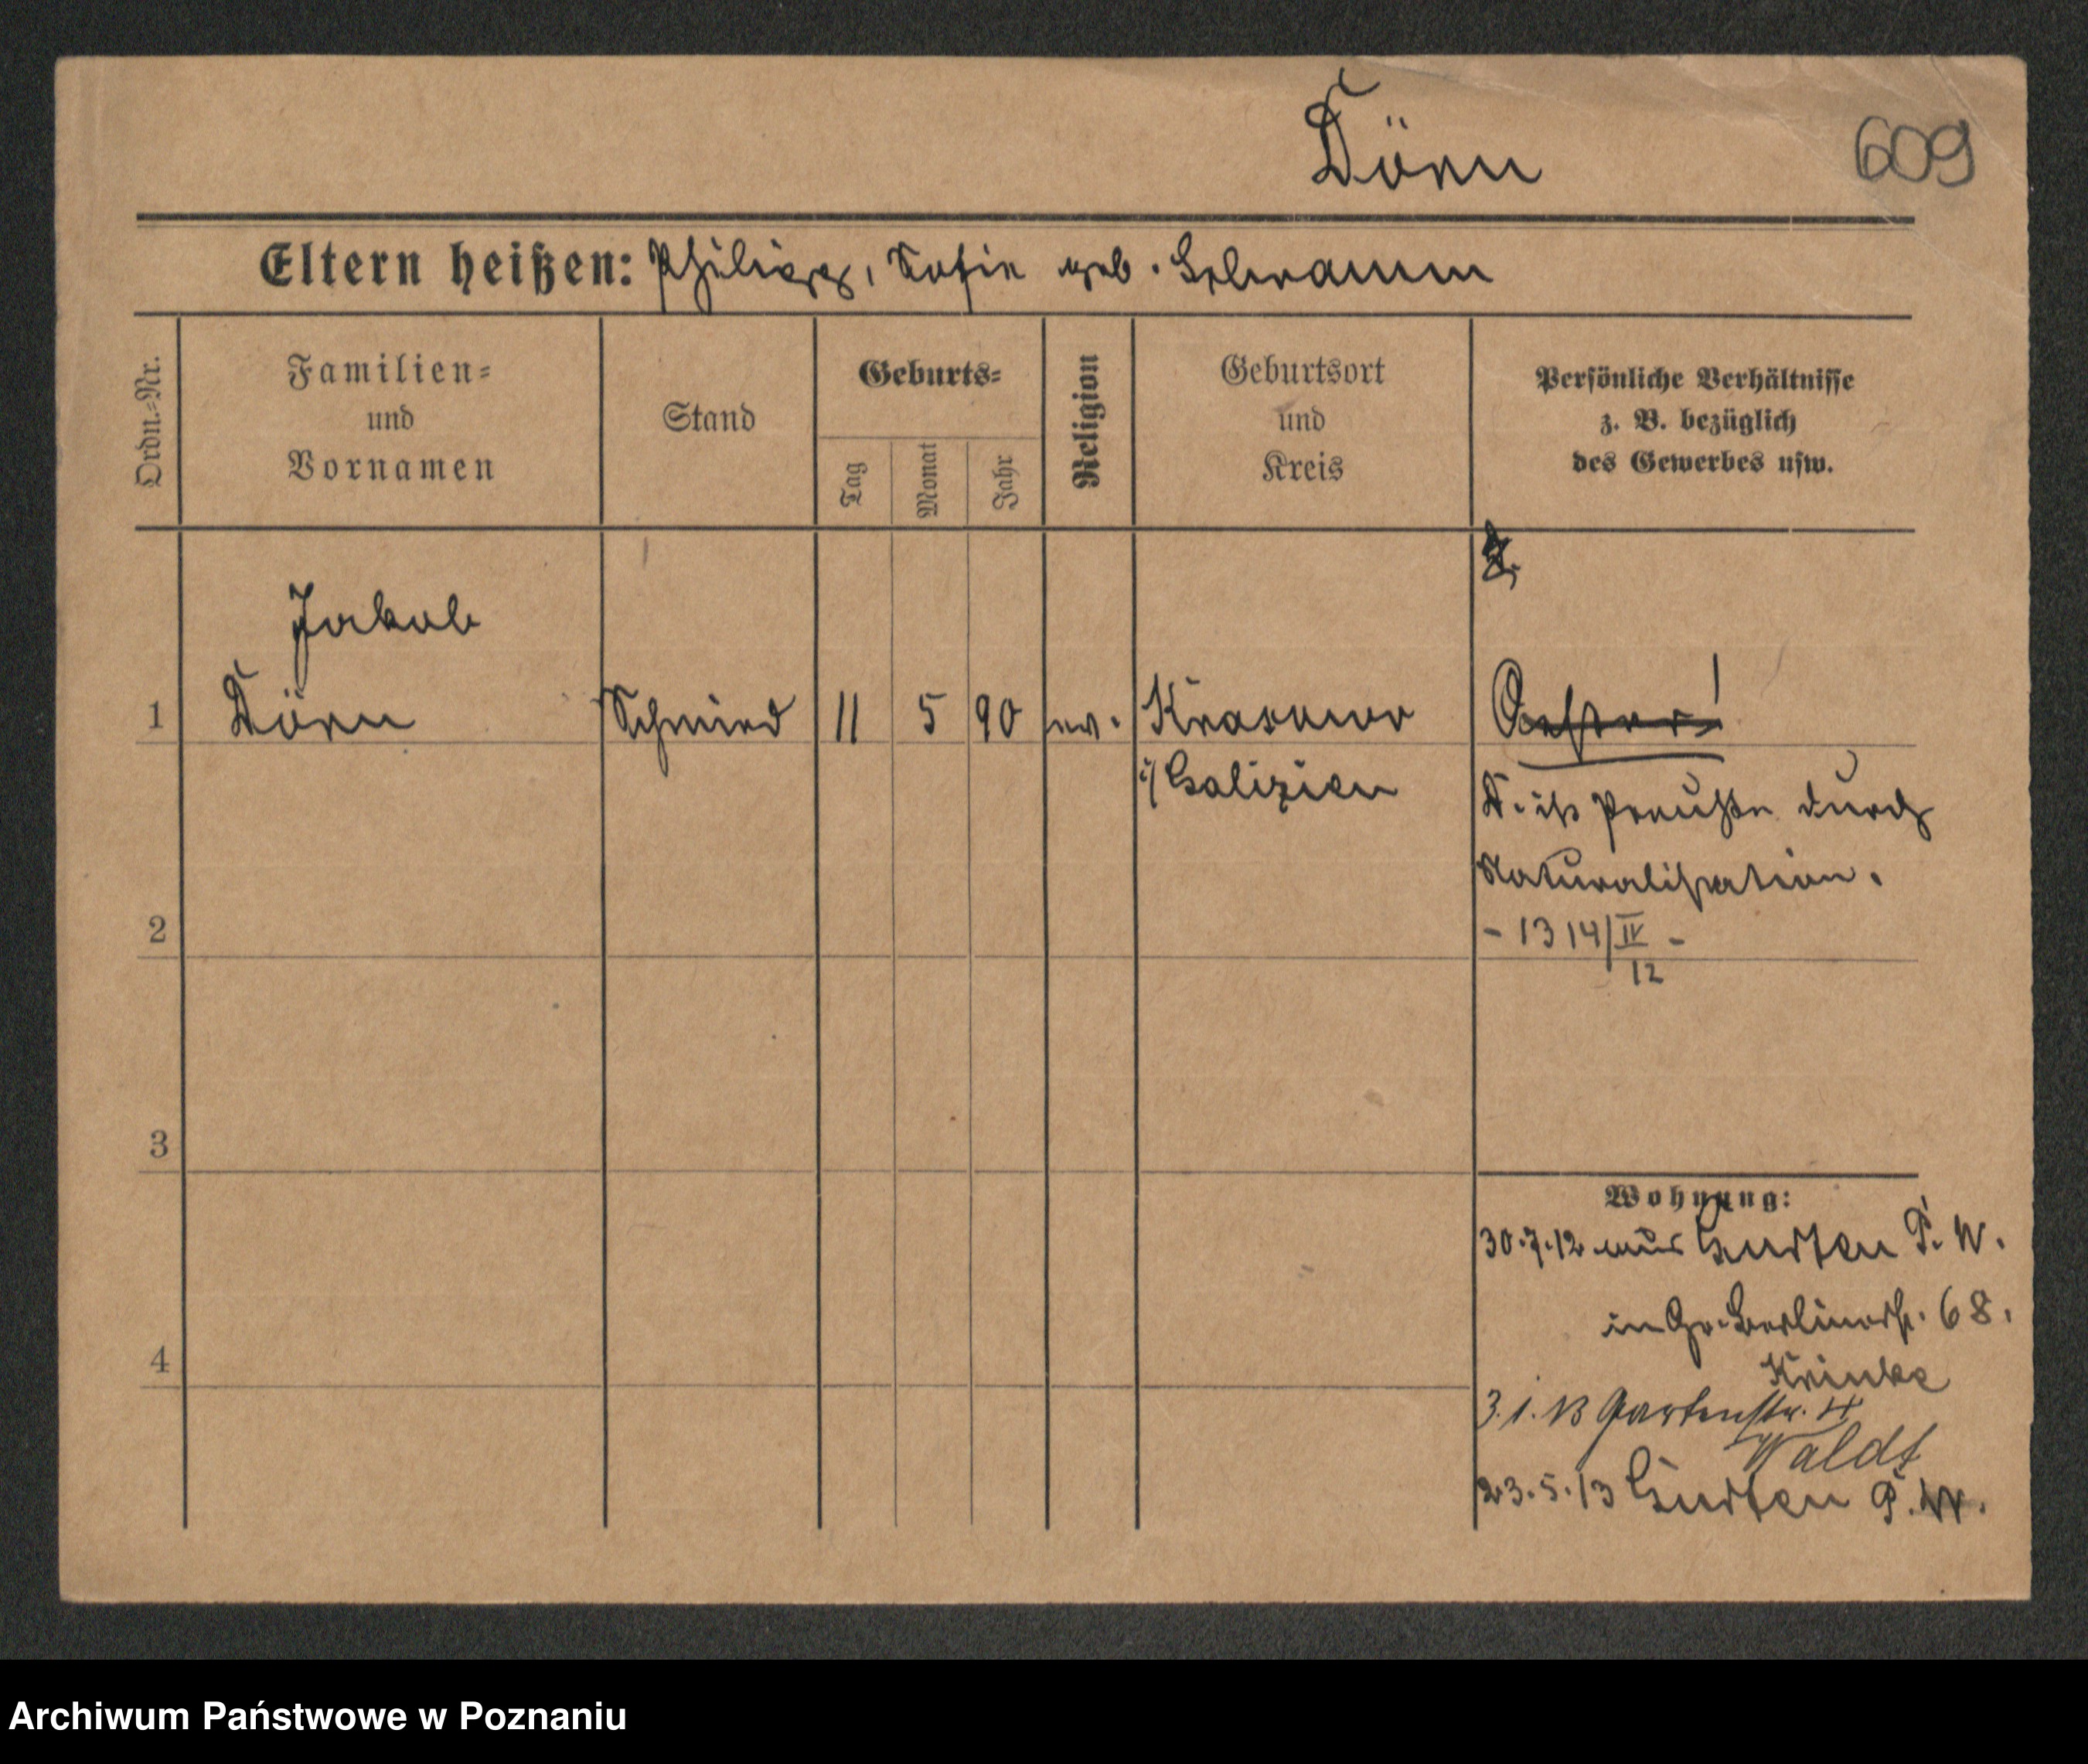 Dörn
609
Eltern heißen: Philipp, Sofie geb. Schramm
Ordn.-Nr.
Familien-
und
Vornamen
Stand
Geburts-
Tag
Monat
Jahr
Religion
Geburtsort
und
Kreis
Persönliche Verhältnisse
z. B. bezüglich
des Gewerbes usw.
Jakob
1 Dörn Schmied 11 5 90 ev. Oester!
i/ Galizien
D. ist Preuße durch
Naturalisation.
2
- 1314/IV -
12
3
Wohnung:
30.7.12 aus Gurten P. W.
in Gr. Berlinerstr. 68.
Krinke
4
3.1.13 Gartenstr. 4
Waldt
23.5.13 Gurten P. W.
Archiwum Państwowe w Poznaniu